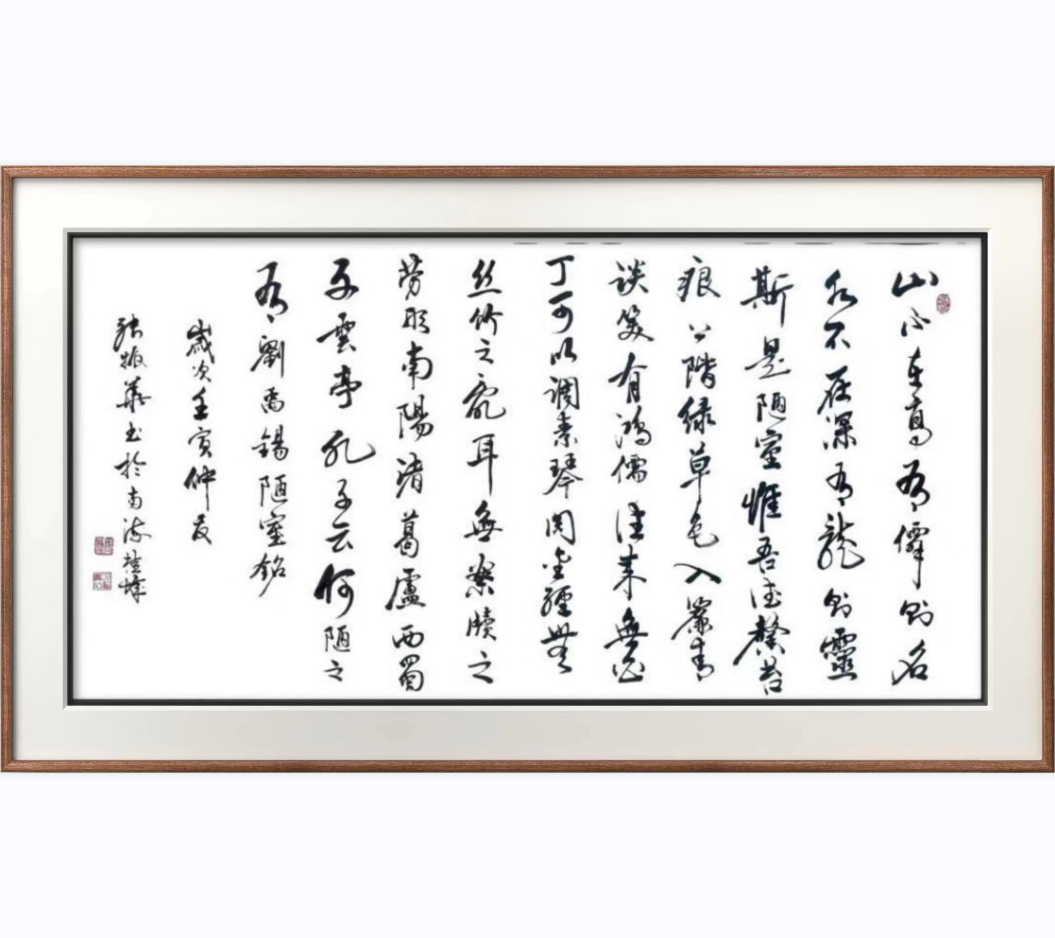 山不在高有僊則名
水不在深有龍則靈
斯是陋室惟吾德馨苔
痕上階緑草色入簾青
談笑有鴻儒往來無白
丁可以調素琴閱金經無
絲竹之亂耳無案牘之
勞形南陽諸葛廬西蜀
子雲亭孔子云何陋之
有劉禹錫陋室銘
歲次壬寅仲夏
張振華書於南海桂城